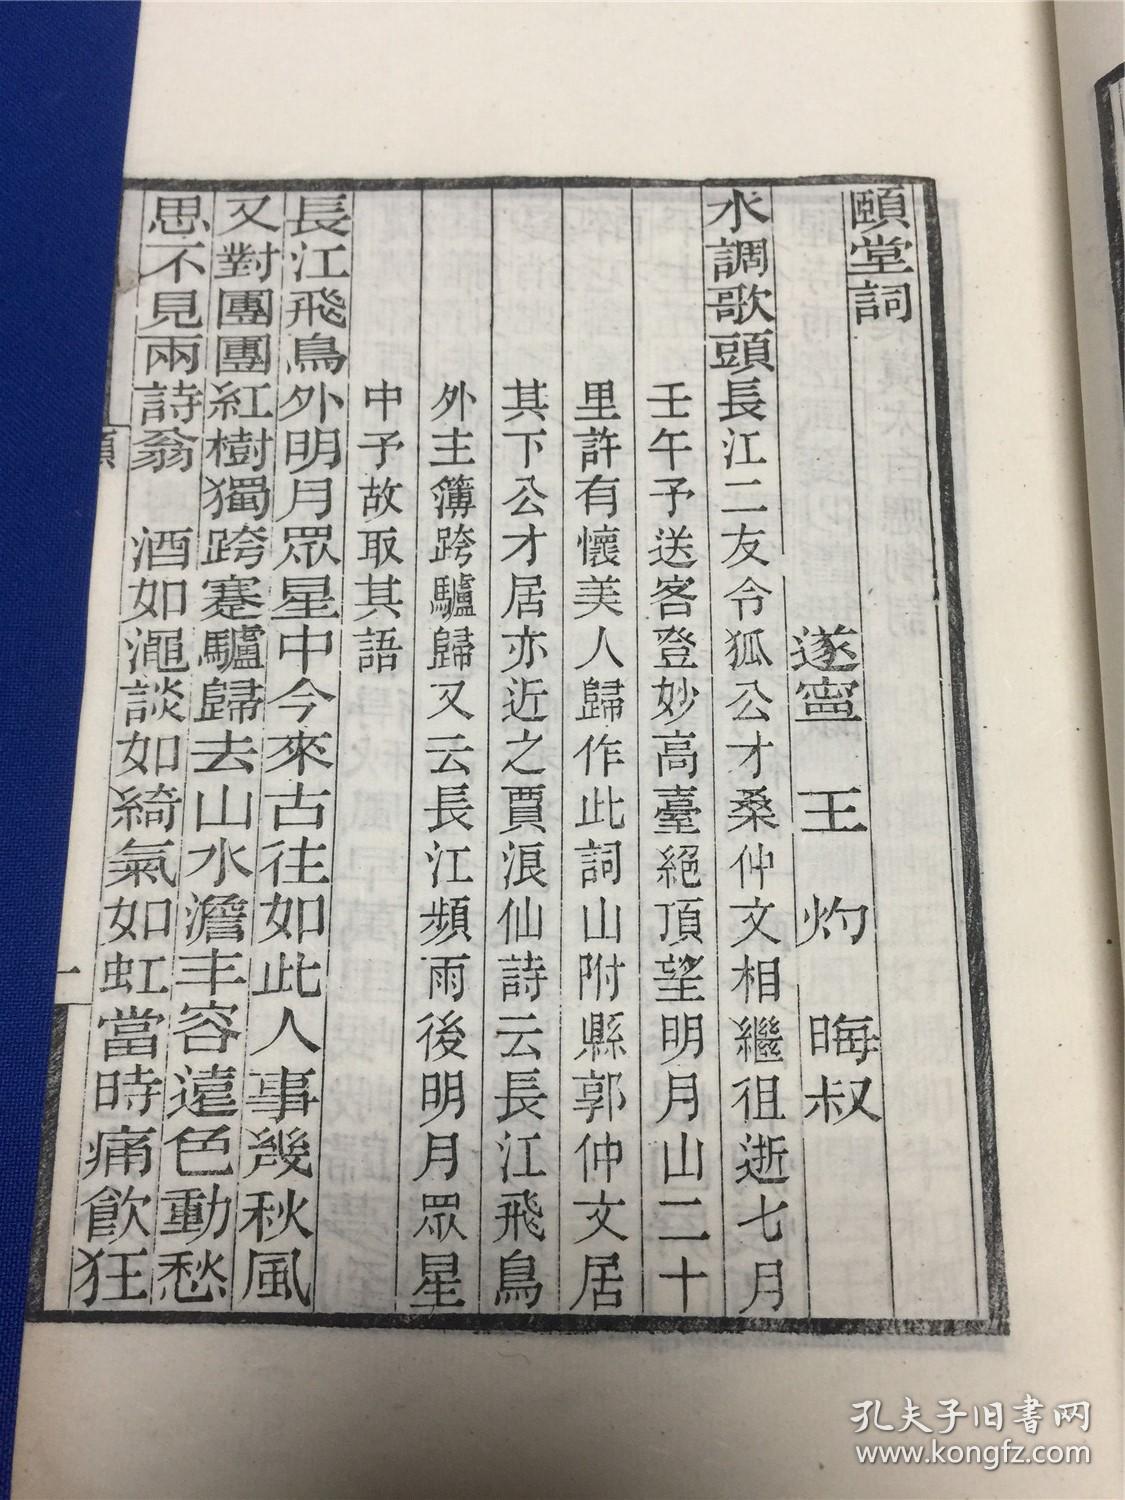 頤堂詞
遂甯 王 灼 晦叔
水調歌頭長江二友令狐公才桑仲文相繼徂逝七月
壬午予送客登妙高臺絕頂望明月山二十
里許有懷美人歸作此詞山附縣郭仲文居
其下公才居亦近之賈浪仙詩云長江飛鳥
外主簿跨驢歸又云長江頻雨後明月眾星
中予故取其語
長江飛鳥外明月眾星中今來古往如此人事幾秋風
又對團團紅樹獨跨蹇驢歸去山水澹丰容遠色動愁
思不見兩詩翁 酒如澠談如綺氣如虹當時痛飲狂
一
孔夫子旧書网
www.kongfz.com